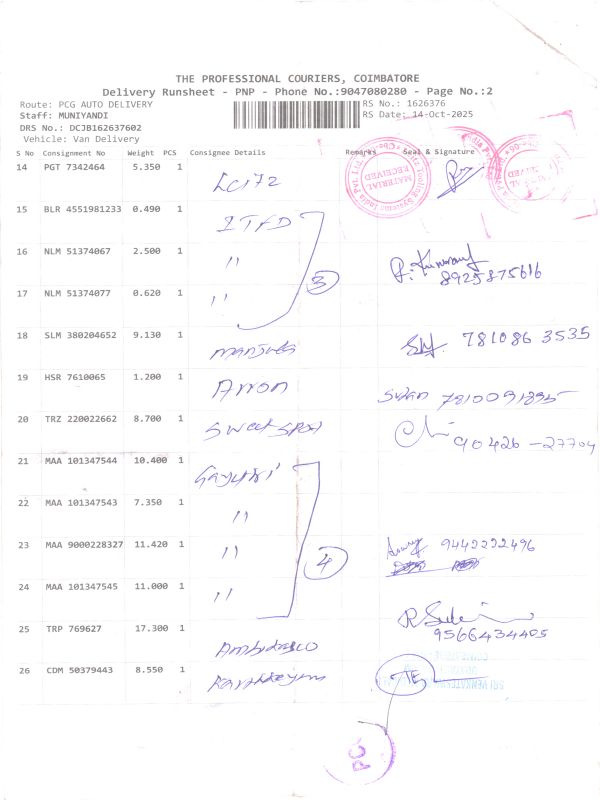 THE PROFESSIONAL COURIERS, COIMBATORE
Delivery Runsheet - PNP - Phone No.:9047080280 - Page No.:2
Route: PCG AUTO DELIVERY RS No.: 1626376
Staff: MUNIYANDI RS Date: 14-Oct-2025
DRS No.: DCJB162637602
Vehicle: Van Delivery
S No Consignment No Weight PCS Consignee Details Remarks Seal & Signature
14 PGT 7342464 5.350 1
MATERIAL RECEIVED
15 BLR 4551981233 0.490 1 ITFD
16 NLM 51374067 2.500 1 " 3
8925875616
17 NLM 51374077 0.620 1 "
18 SLM 380204652 9.130 1 781086 3535
19 HSR 7610065 1.200 1 Arron
20 TRZ 220022662 8.700 1 Sweet Spot 90426-27704
21 MAA 101347544 10.400 1
22 MAA 101347543 7.350 1 "
23 MAA 9000228327 11.420 1 " 4 9442222496
24 MAA 101347545 11.000 1 "
25 TRP 769627 17.300 1 9566434405
26 CDM 50379443 8.550 1
PC